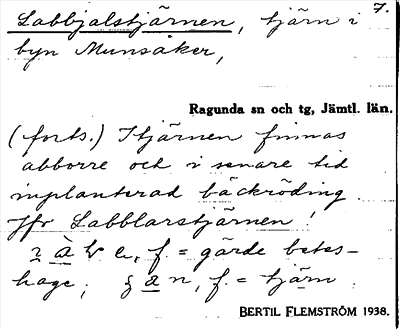 Labbjalstjärnen, tjärn i 7.
byn Munsåker,
Ragunda sn och tg, Jämtl. län.
(forts.) I tjärnen finnas
abborre och i senare tid
inplanterad bäckröding.
Jfr Labblarstjärnen!
f. = gärde betes-
hage; f. = tjärn.
BERTIL FLEMSTRÖM 1938.